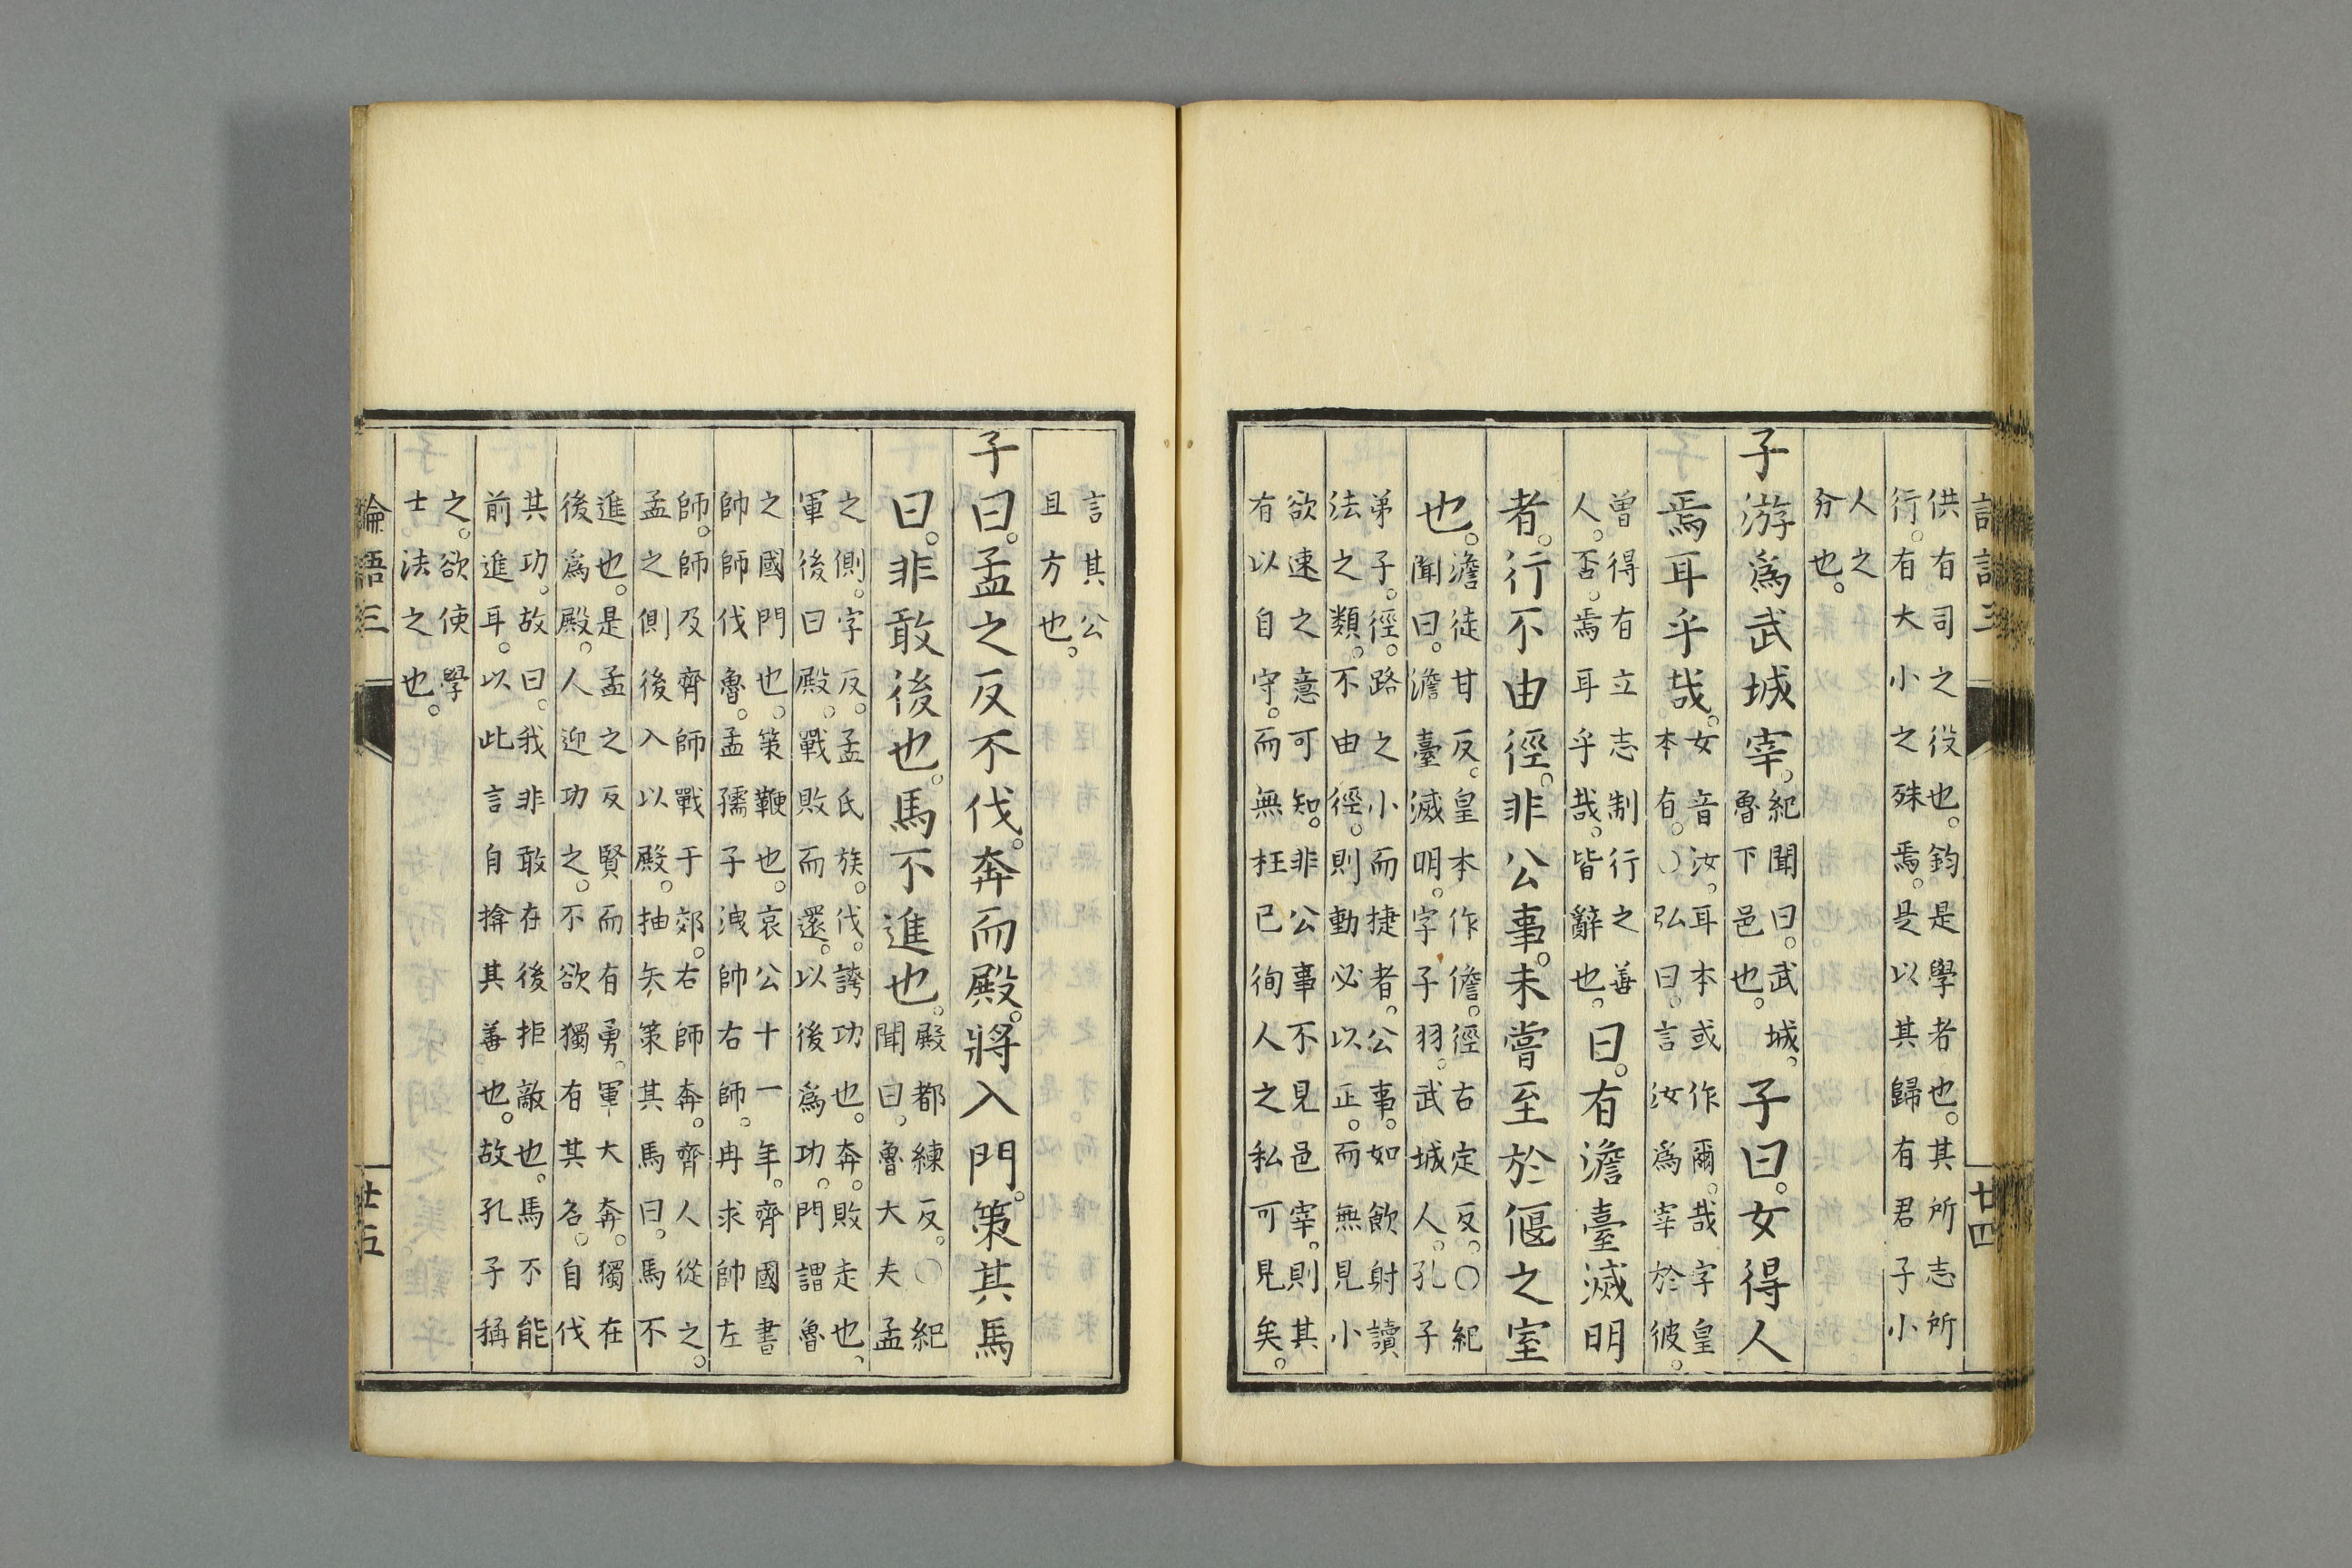 供有司之役也。鈞是學者也。其所志所
行。有大小之殊焉。是以其歸有君子小
人之
分也。
子游爲武城宰。
紀聞曰。武城。
魯下邑也。
子曰。女得人
焉耳乎哉。
女音汝。耳本或作爾。哉字皇
本有。○弘曰。言汝爲宰於彼。
曽得有立志制行之善
人。否。焉耳乎哉。皆辭也。
曰。有澹臺滅明
者。行不由徑。非公事。未嘗至於偃之室
也。
澹徒甘反。皇本作儋。徑古定反。○紀
聞曰。澹臺滅明。字子羽。武城人。孔子
弟子。徑。路之小而捷者。公事。如飮射讀
法之類。不由徑。則動必以正。而無見小
欲速之意可知。非公事不見邑宰。則其
有以自守。而無枉已徇人之私可見矣。
廿四
言其公
且方也。
子曰。孟之反不伐。奔而殿。將入門。策其馬
曰。非敢後也。馬不進也。
殿都練反。○紀
聞曰。魯大夫孟
之側。字反。孟氏族。伐。誇功也。奔。敗走也。
軍後曰殿。戰敗而還。以後爲功。門謂魯
之國門也。策鞭也。哀公十一年。齊國書
帥師伐魯。孟孺子洩帥右師。冉求帥左
師。師及齊師戰于郊。右師奔。齊人從之。
孟之側後入以殿。抽矢策其馬曰。馬不
進也。是孟之反賢而有勇。軍大奔。獨在
後爲殿。人迎功之。不欲獨有其名。自伐
其功。故曰。我非敢在後拒敵也。馬不能
前進耳。以此言自揜其善也。故孔子稱
之。欲使學
士法之也。
論語三
廿五